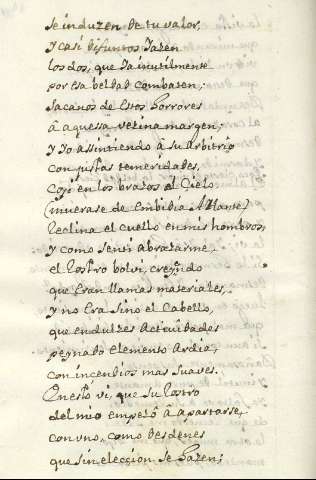 se induzen de tu valor,
y casi difuntos yazen
los dos, que ya inutilmente
por esa beldad combaten;
sacanos de estos horrores
â aquessa vezina margen;
y yo assintiendo â su arbitrio
con justas temeridades,
coji en los brazos al Cielo
(muerase de embidia Atlante)
reclina el cuello en mis hombros,
y como senti abrazarme
el rostro bolvi, creyẽdo
que eran llamas materiales,
y no era sino el Cabello,
que en dulzes actividades
peynado elemento ardia,
con incendios mas suaves.
En esto vi, que su rostro
del mio empezô â apartarse,
con vno, como desdenes
que sin eleccion se hazen;